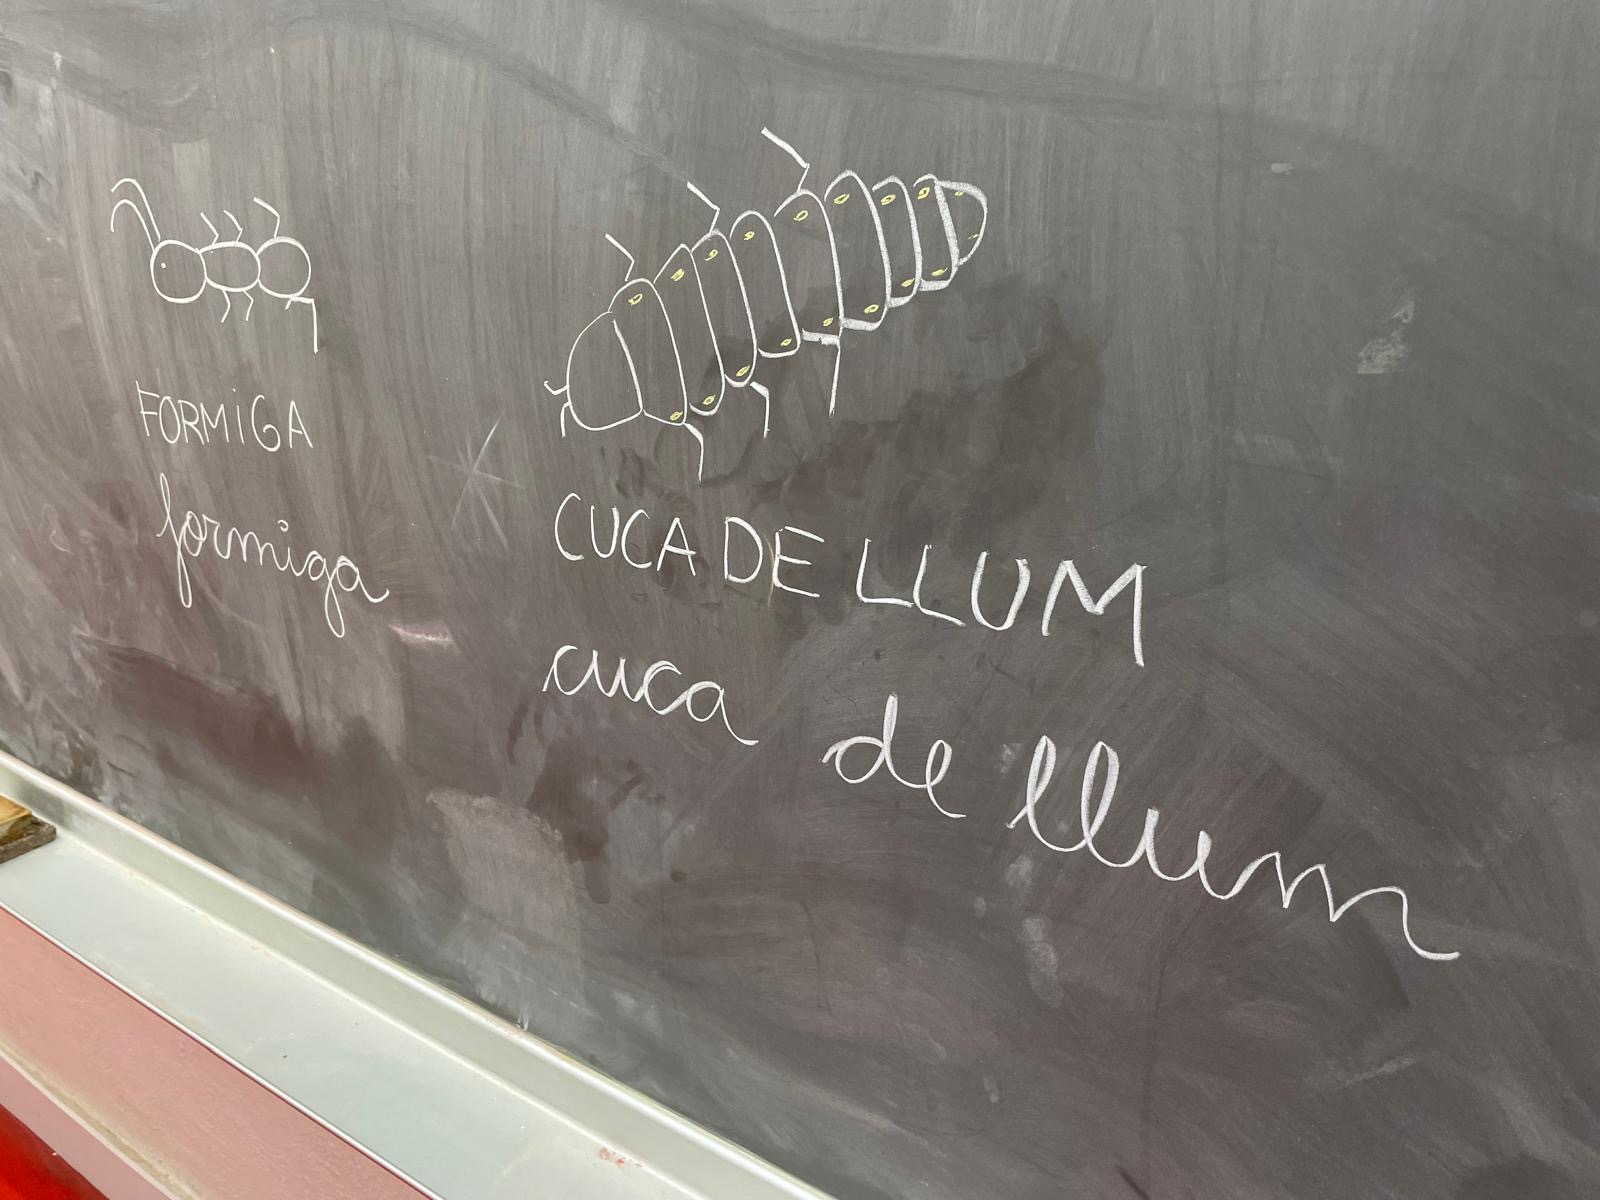 FORMIGA
formiga
CUCA DE LLUM
cuca de llum